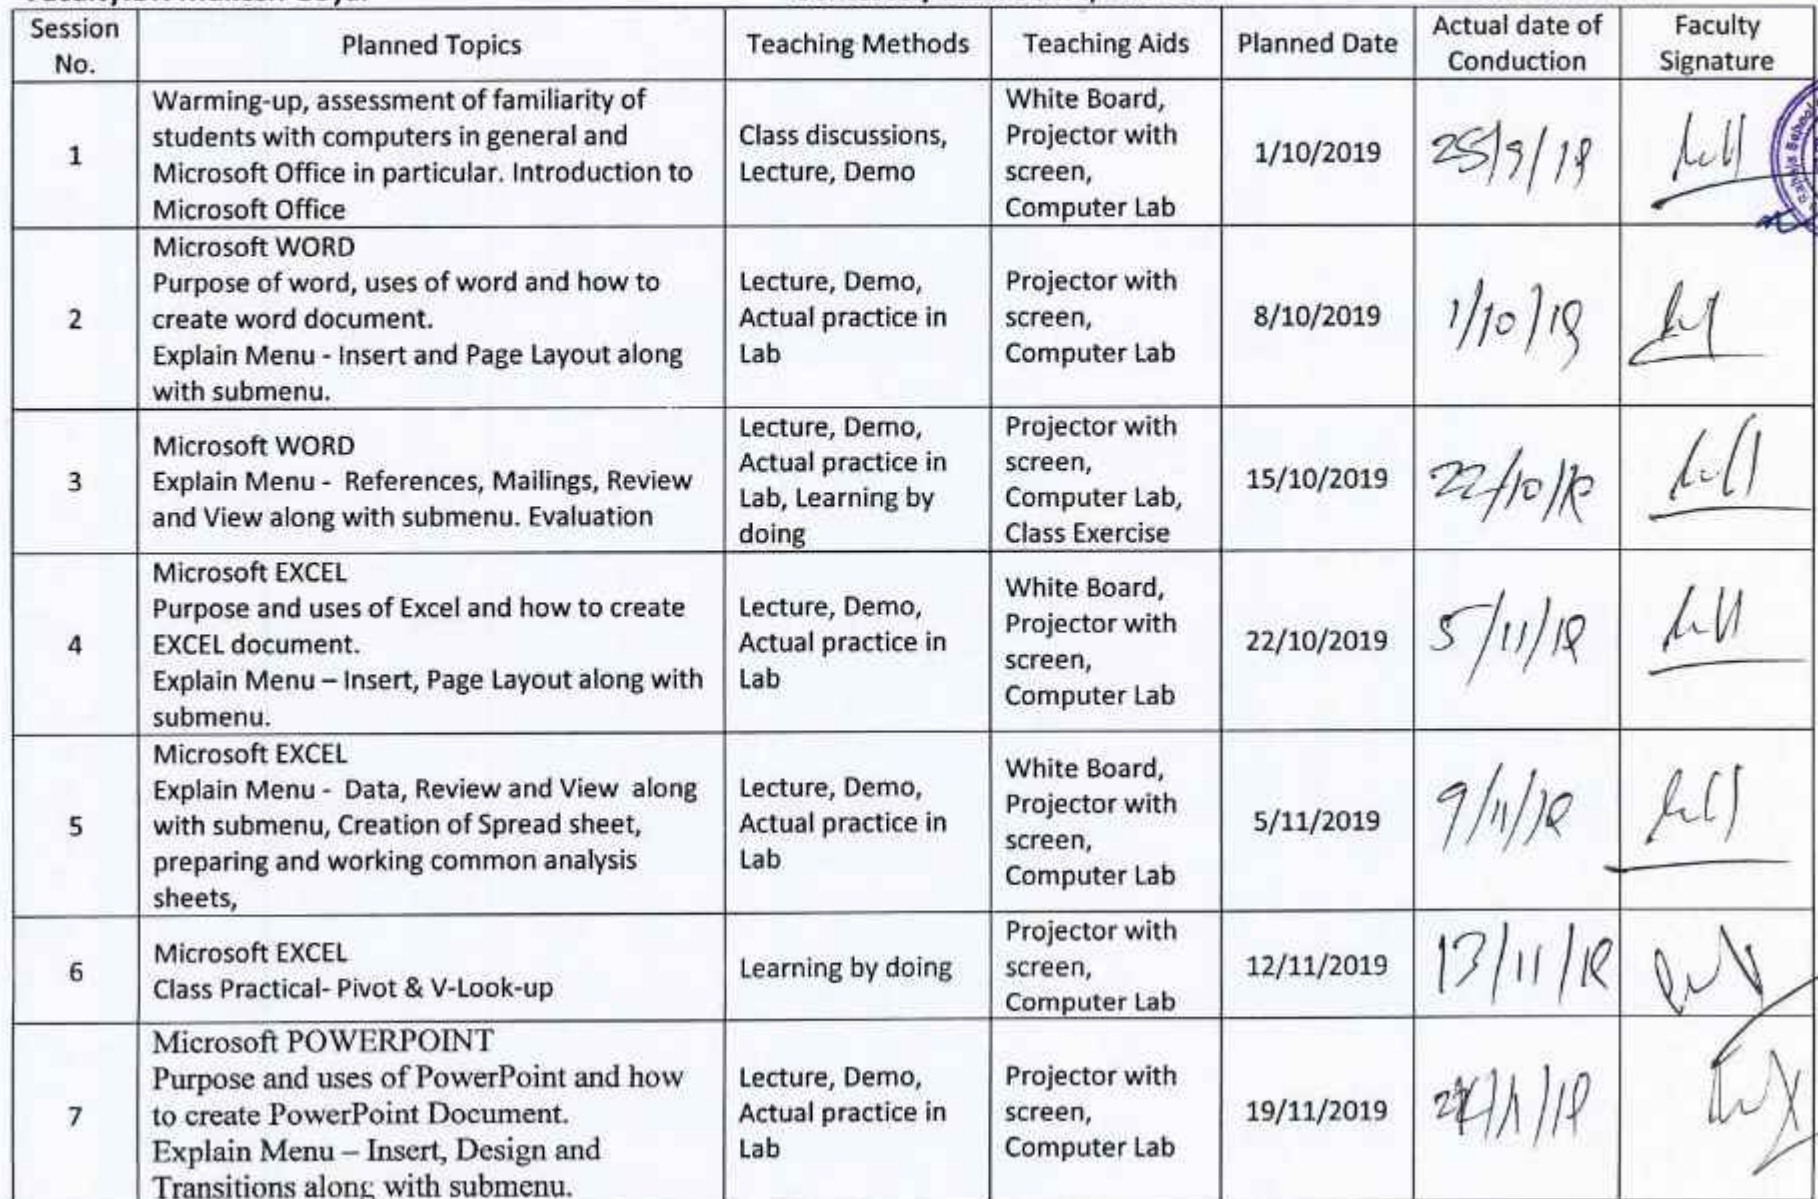 Session No.
Planned Topics
Teaching Methods
Teaching Aids
Planned Date
Actual date of Conduction
Faculty Signature
1
Warming-up, assessment of familiarity of
students with computers in general and
Microsoft Office in particular. Introduction to
Microsoft Office
Class discussions,
Lecture, Demo
White Board,
Projector with
screen,
Computer Lab
1/10/2019
25/9/19
2
Microsoft WORD
Purpose of word, uses of word and how to
create word document.
Explain Menu - Insert and Page Layout along
with submenu.
Lecture, Demo,
Actual practice in
Lab
Projector with
screen,
Computer Lab
8/10/2019
1/10/19
3
Microsoft WORD
Explain Menu - References, Mailings, Review
and View along with submenu. Evaluation
Lecture, Demo,
Actual practice in
Lab, Learning by
doing
Projector with
screen,
Computer Lab,
Class Exercise
15/10/2019
22/10/19
4
Microsoft EXCEL
Purpose and uses of Excel and how to create
EXCEL document.
Explain Menu – Insert, Page Layout along with
submenu.
Lecture, Demo,
Actual practice in
Lab
White Board,
Projector with
screen,
Computer Lab
22/10/2019
5/11/19
5
Microsoft EXCEL
Explain Menu - Data, Review and View along
with submenu, Creation of Spread sheet,
preparing and working common analysis
sheets,
Lecture, Demo,
Actual practice in
Lab
White Board,
Projector with
screen,
Computer Lab
5/11/2019
9/11/19
6
Microsoft EXCEL
Class Practical- Pivot & V-Look-up
Learning by doing
Projector with
screen,
Computer Lab
12/11/2019
13/11/19
7
Microsoft POWERPOINT
Purpose and uses of PowerPoint and how
to create PowerPoint Document.
Explain Menu – Insert, Design and
Transitions along with submenu.
Lecture, Demo,
Actual practice in
Lab
Projector with
screen,
Computer Lab
19/11/2019